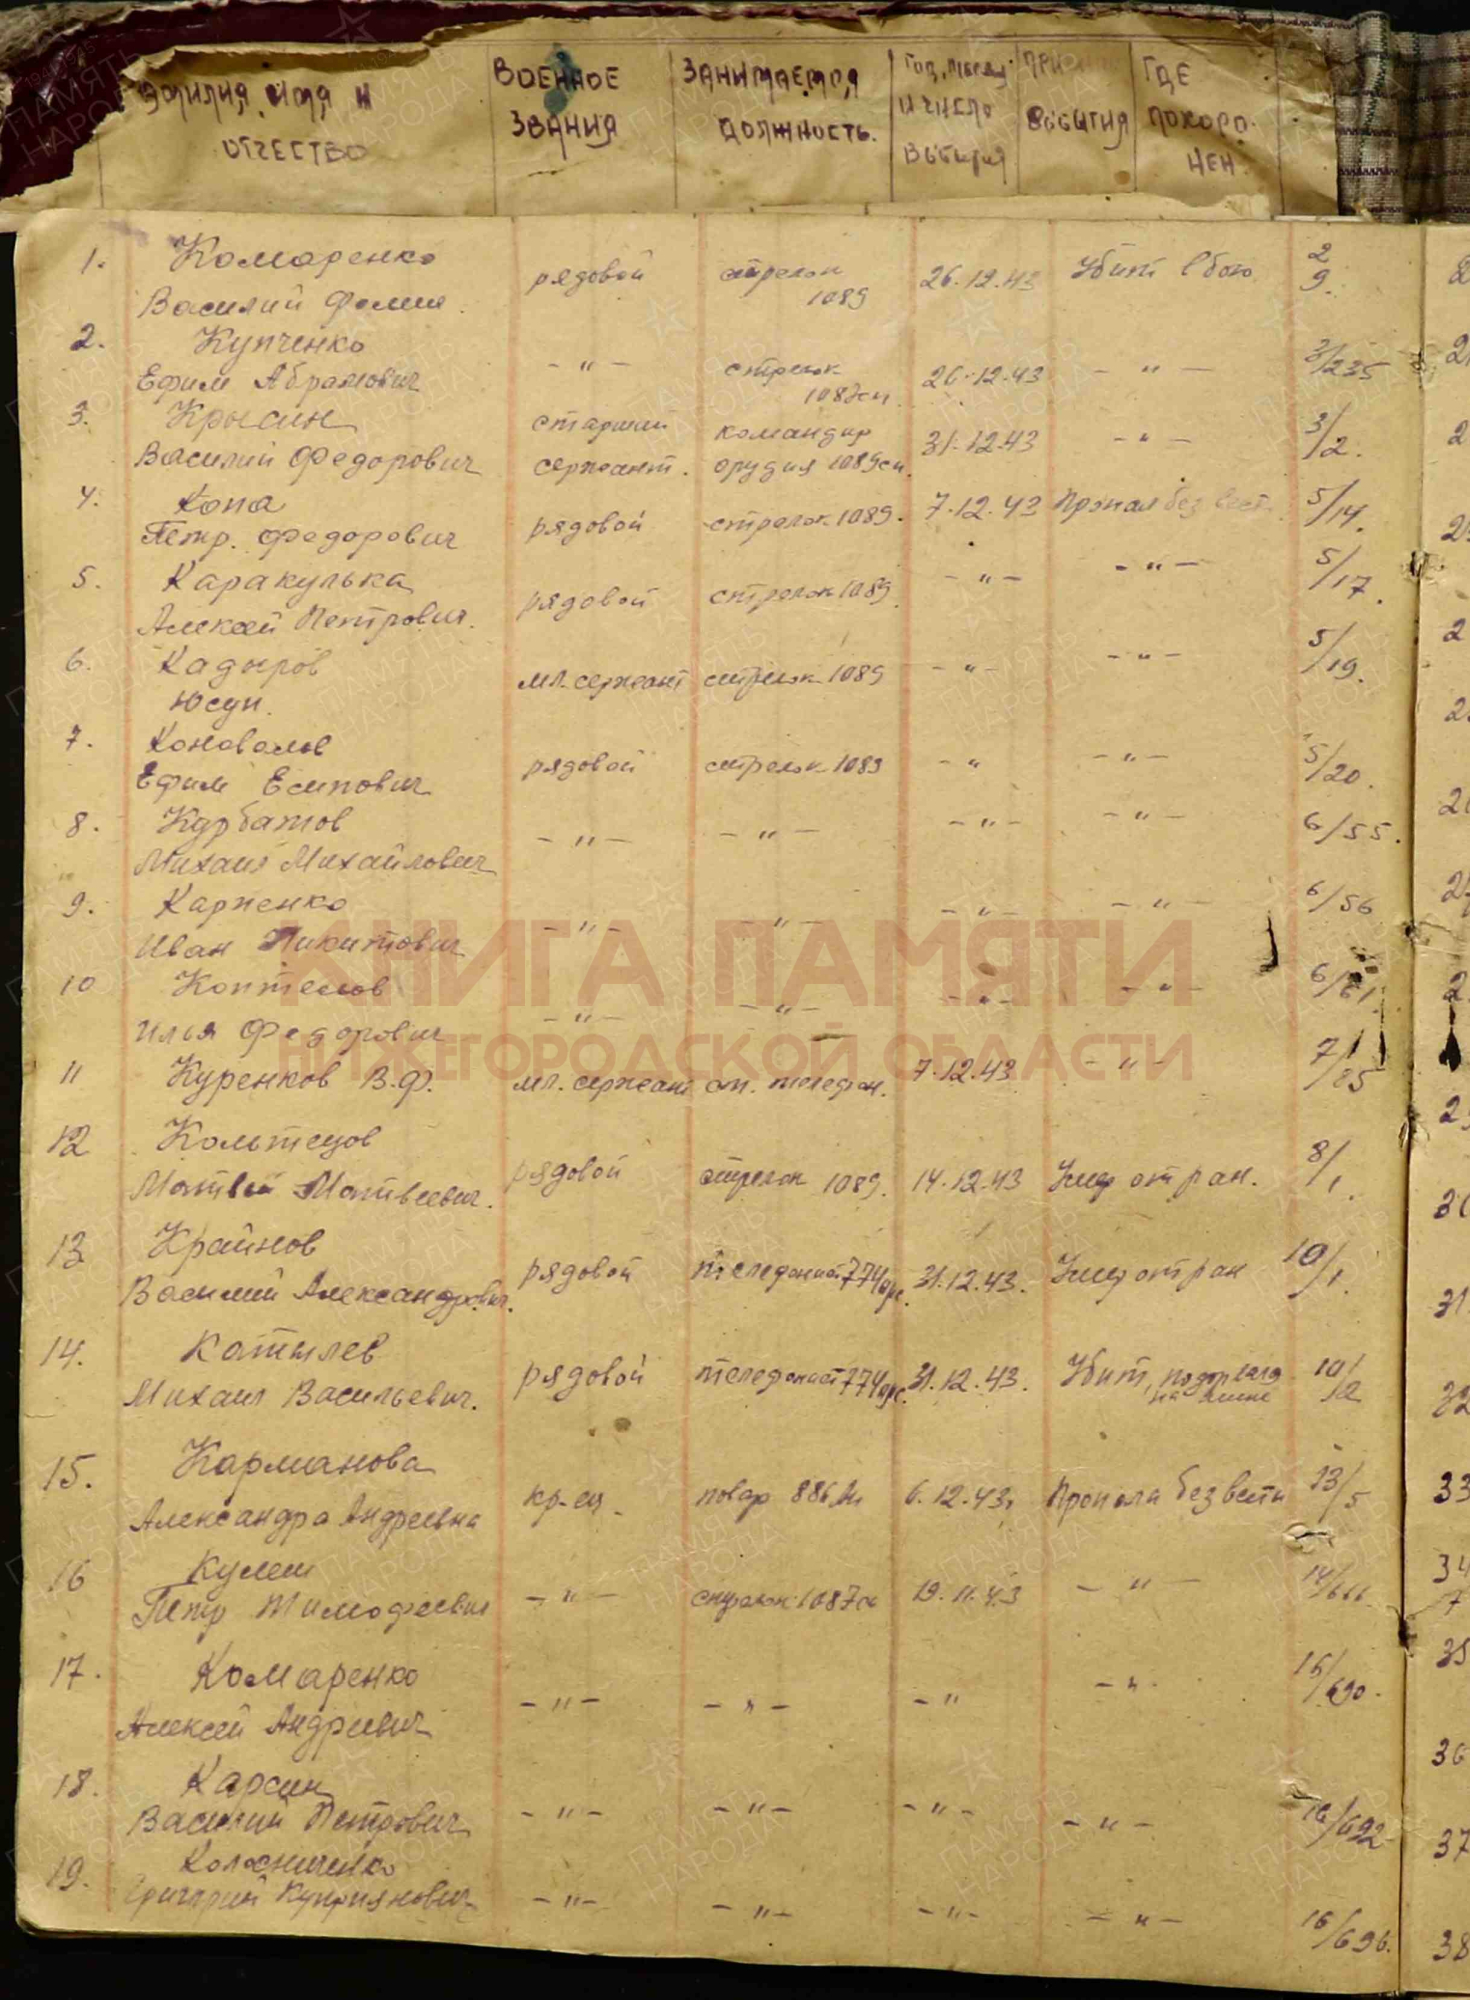 Фамилия, имя и отчество
Военное звания
Занимаемая должность.
Год, месяц и число выбытия
При выбытия
Где похоронен
1. Комаренко Василий Фомич рядовой стрелок 1089 26.12.43 Убит в бою 2 9.
2. Купченко Ефим Абрамович -"- стрелок 1087сп. 26.12.43 -"- 3/235
3. Крысин Василий Федорович старший сержант. командир орудия 1089сп. 31.12.43 -"- 3/2.
4. Копа Петр. Федорович рядовой стрелок 1089. 7.12.43 Пропал без вест. 5/14.
5. Каракулька Алексей Петрович. рядовой стрелок 1089. -"- -"- 5/17.
6. Кадыров Юсуп. мл. сержант стрелок 1089 -"- -"- 5/19.
7. Коновалов Ефим Есипович рядовой стрелок 1089 -" -"- 5/20.
8. Курбатов Михаил Михайлович -"- -"- -"- -"- 6/55.
9. Карпенко Иван Никитович -"- -"- -"- -"- 6/56
10 Коптелов Илья Федорович -"- -"- -"- -"- 6/61
11 Куренков В.Ф. мл. сержант ст. телефон. 7.12.43 -"- 7/85
12 Кольтецов Матвей Матвеевич. рядовой стрелок 1089. 14.12.43 Умер от ран. 8/1.
13 Крайнов Василий Александрович. рядовой телефонист 774арт. 31.12.43. Умер от ран 10/1.
14. Катылев Михаил Васильевич. рядовой телефонист 774арт. 31.12.43. Убит, подорвался на мине 10/2
15. Карманова Александра Андреевна кр-ец. повар 886 6.12.43г Пропала без вести 13/5
16 Кулеш Петр Тимофеевич -"- стрелок 1087сп 19.11.43 -"- 14/616.
17. Комаренко Алексей Андреевич -"- -"- -" -"- 16/690.
18. Карсин Василий Петрович -"- -"- -"- -"- 16/692
19. Колесниченко Григорий Куприянович -"- -"- -"- -"- 16/696.
КНИГА ПАМЯТИ
НИЖЕГОРОДСКОЙ ОБЛАСТИ
33
36
37
38